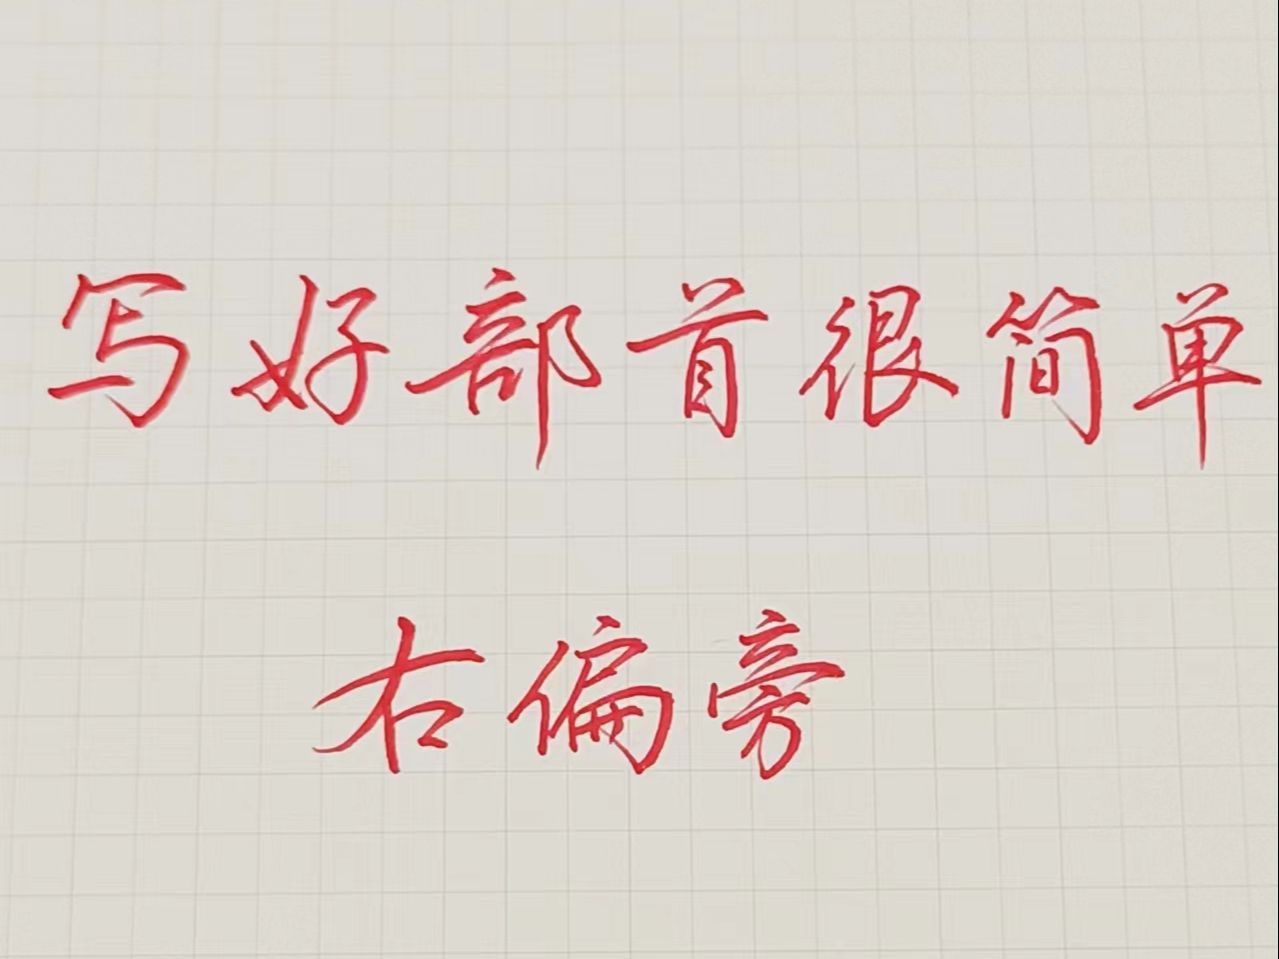 写好部首很简单
右偏旁